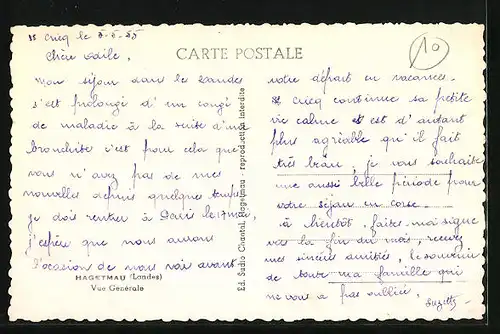 St Cricq le 7-5-55
CARTE POSTALE
10
Chère Odile,
mon séjour dans les Landes
s'est prolongé d'un congé
de maladie à la suite d'une
bronchite c'est pour cela que
vous n'avez pas de mes
nouvelles depuis quelques temps
je dois rentrer à Paris le 17 mai,
j'espère que nous aurons
l'occasion de nous voir avant
HAGETMAU (Landes)
Vue Générale
Ed. Sudio Chantal Hagetmau - reproduction interdite
votre départ en vacances.
St Cricq continue sa petite
vie calme et est d'autant
plus agréable qu'il fait
très beau, je vous souhaite
une aussi belle période pour
votre séjour en corse.
à bientôt, faites-moi signe
vers la fin du mois, recevez
mes sincères amitiés, le souvenir
de toute ma famille qui
ne vous a pas oubliée.
Suzette